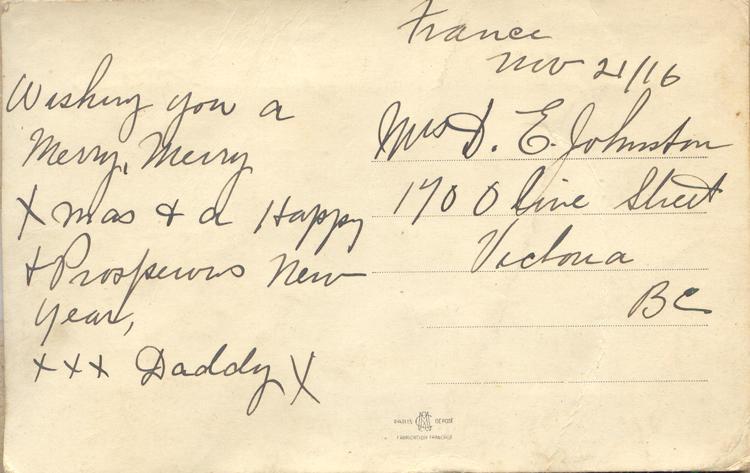 France
Nov 21/16
Wishing you a
Merry, Merry
Xmas & a Happy
& Prosperous New
Year,
xxx Daddy X
Mrs D. E. Johnston
170 Olive Street
Victoria
BC
DEPOSÉ
FABRICATION FRANÇAISE